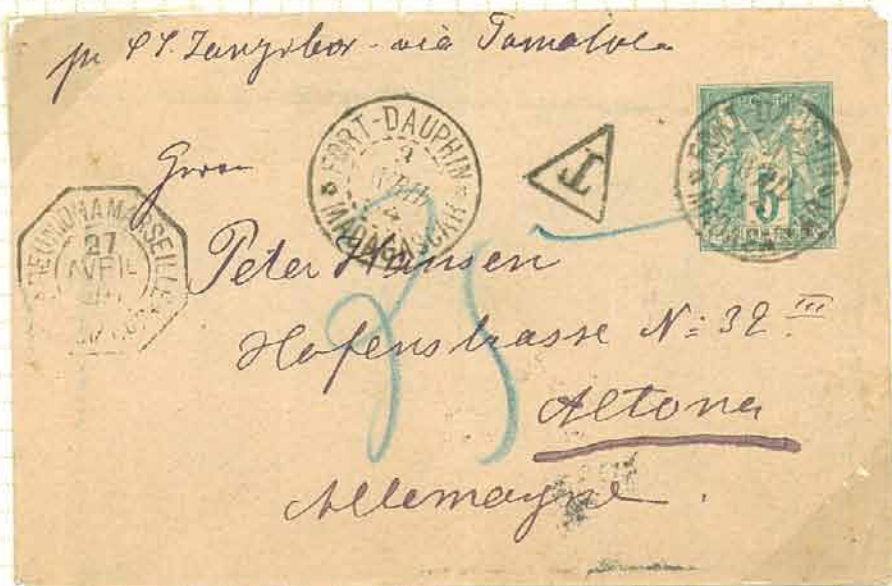 pr SS. Zanzibar - via Tamatave
FORT-DAUPHIN
MADAGASCAR
T
FORT-DAUPHIN
5
Herrn
LA REUNION A MARSEILLE
27
AVRIL
Peter Hansen
Hafenstrasse No: 32 III
25
Altona
Allemagne.